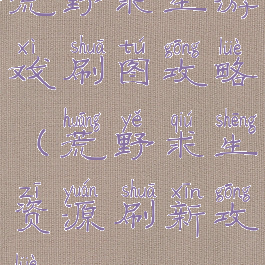 荒野求生游
xì shuā tú gōng lüè
戏刷图攻略
huāng yě qiú shēng
（荒野求生
zī yuán shuā xīn gōng
资源刷新攻
lüè